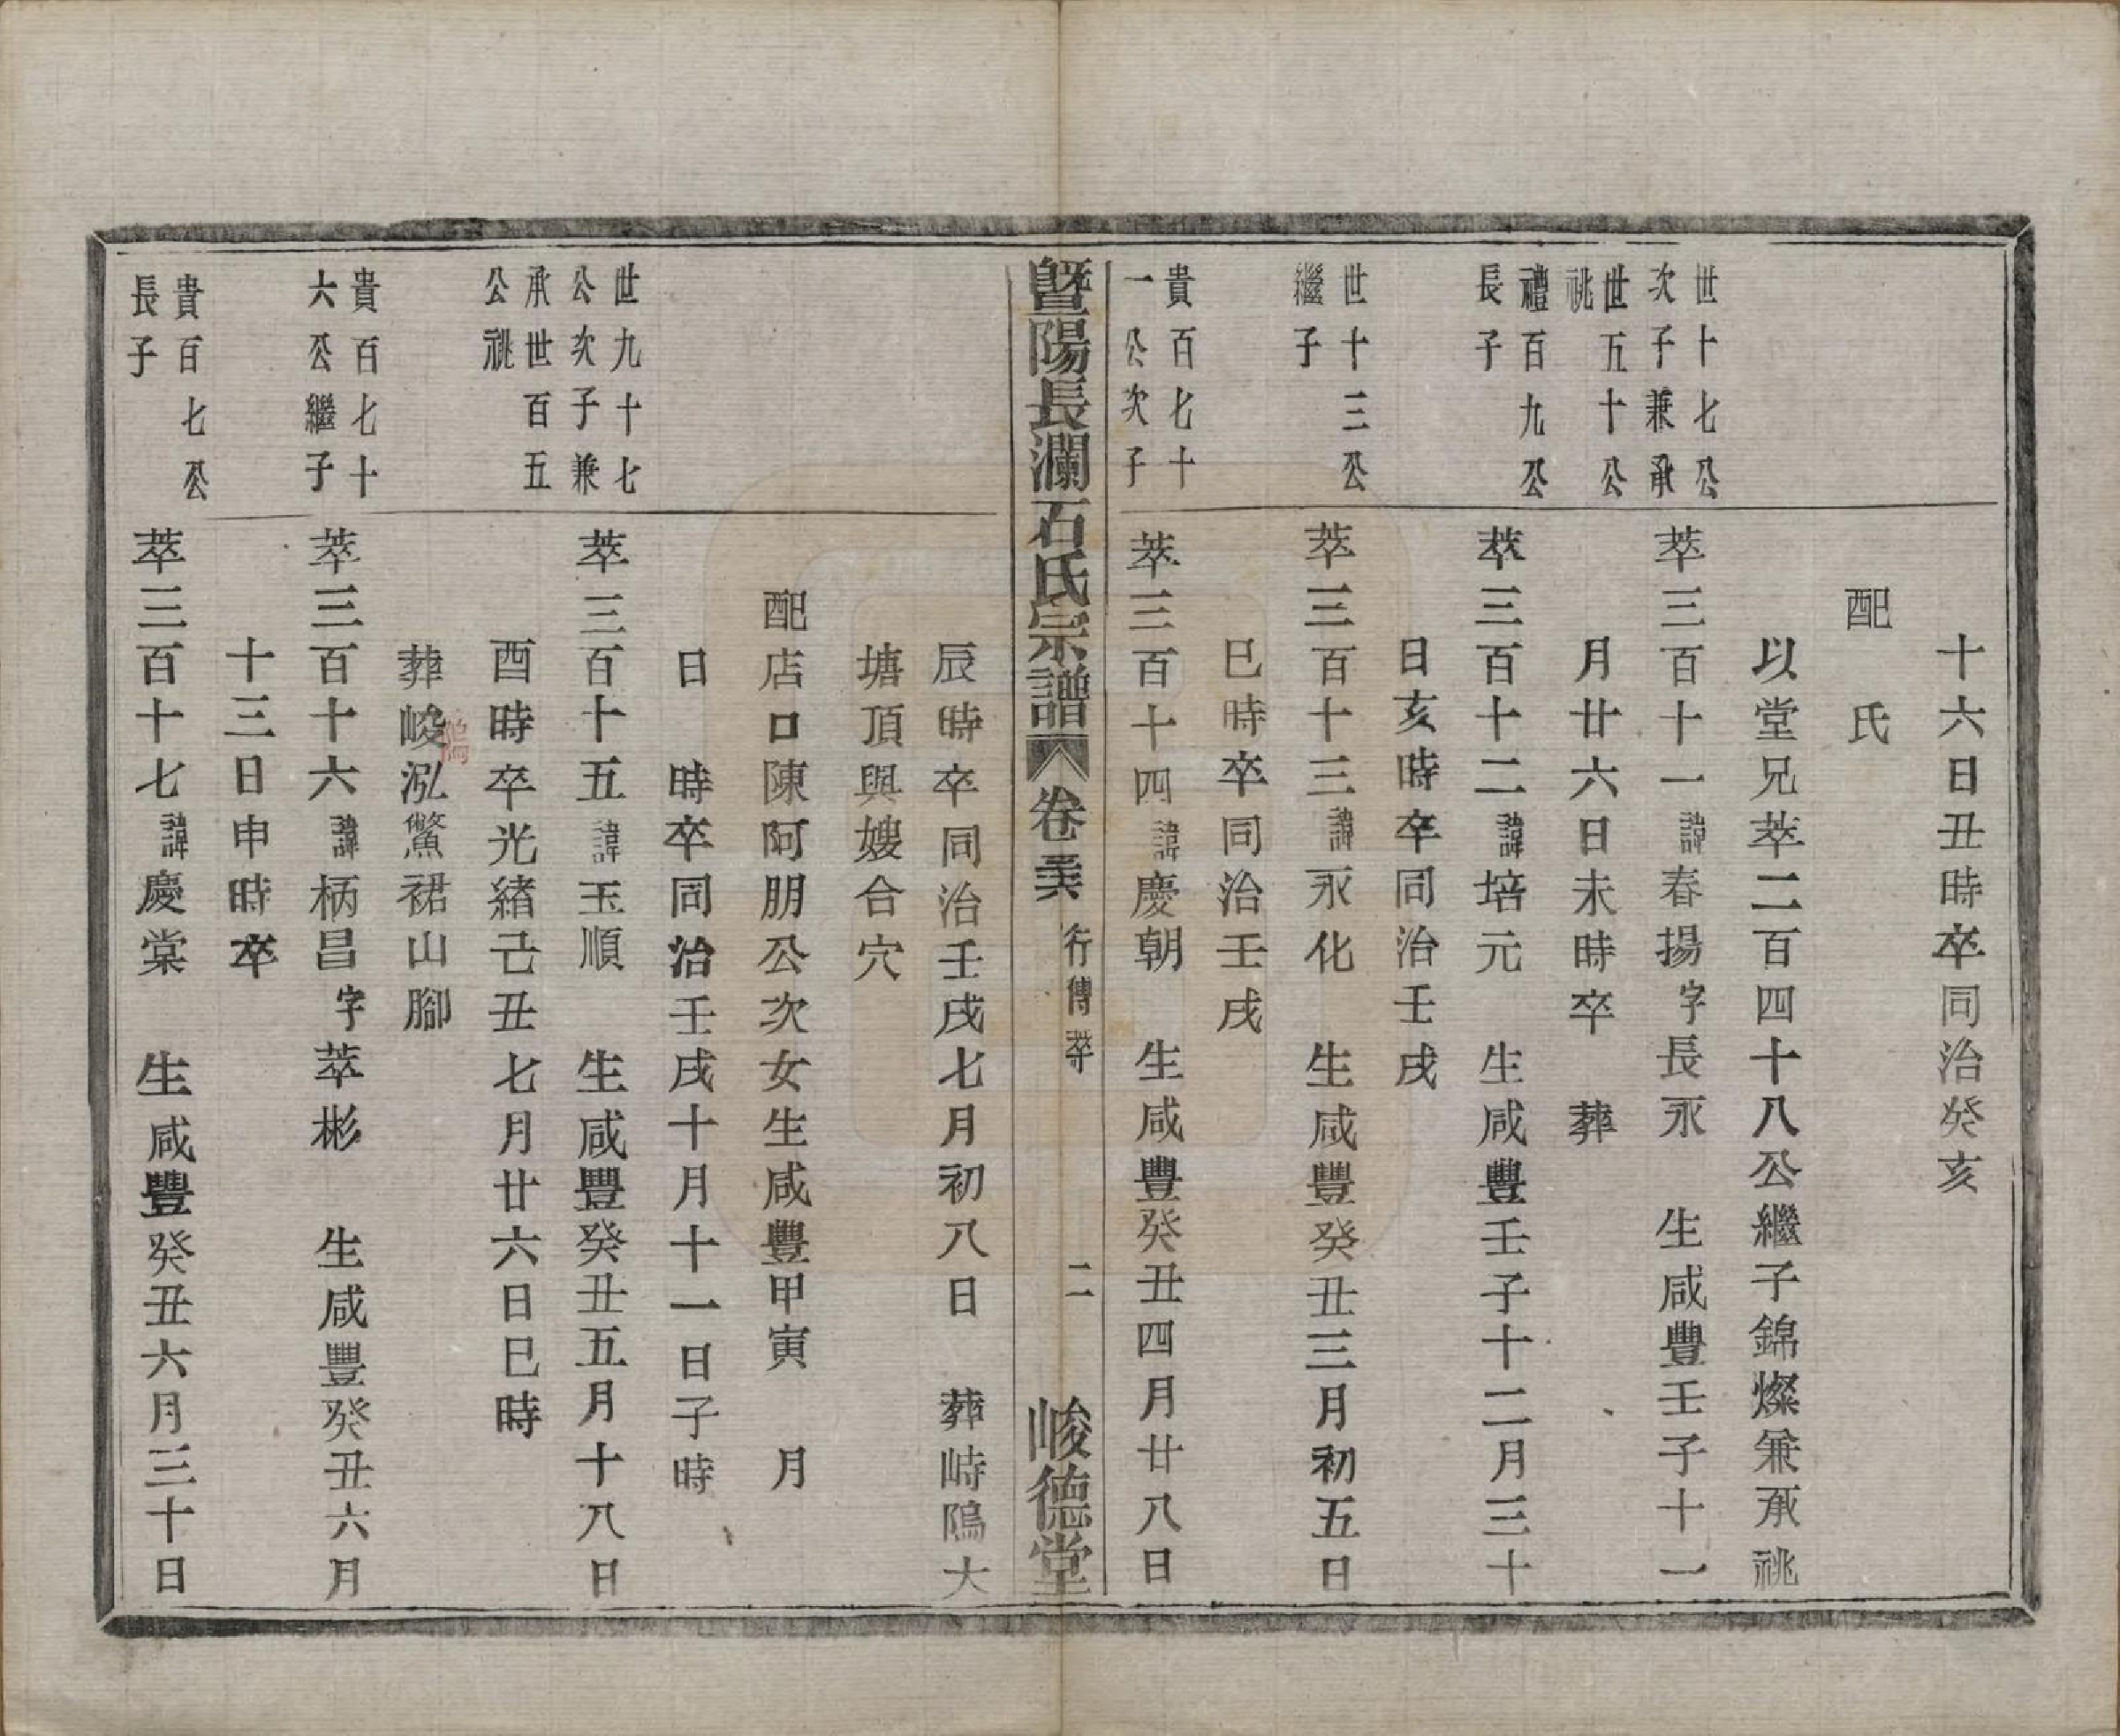 十六日丑時卒同治癸亥
配　氏
以堂兄萃二百四十八公繼子錦燦兼承祧
世十七公
次子兼承
世五十公
祧
萃三百十一諱春揚字長永　生咸豐壬子十一
月廿六日未時卒　葬
禮百九公
長子
萃三百十二諱培元　生咸豐壬子十二月三十
日亥時卒同治壬戌
世十三公
繼子
萃三百十三諱永化　生咸豐癸丑三月初五日
巳時卒同治壬戌
貴百七十
一公次子
萃三百十四諱慶朝　生咸豐癸丑四月廿八日
暨陽長瀾石氏宗譜　卷　行傳萃　二　峻德堂
辰時卒同治壬戌七月初八日　葬峙隝大
塘頂與嫂合穴
配店口陳阿朋公次女生咸豐甲寅　月
日　時卒同治壬戌十月十一日子時
世九十七
公次子兼
承世百五
公祧
萃三百十五諱玉順　生咸豐癸丑五月十八日
酉時卒光緒己丑七月廿六日巳時
葬峻泓鱉裙山腳
貴百七十
六公繼子
萃三百十六諱柄昌字萃彬　生咸豐癸丑六月
十三日申時卒
貴百七公
長子
萃三百十七諱慶棠　生咸豐癸丑六月三十日